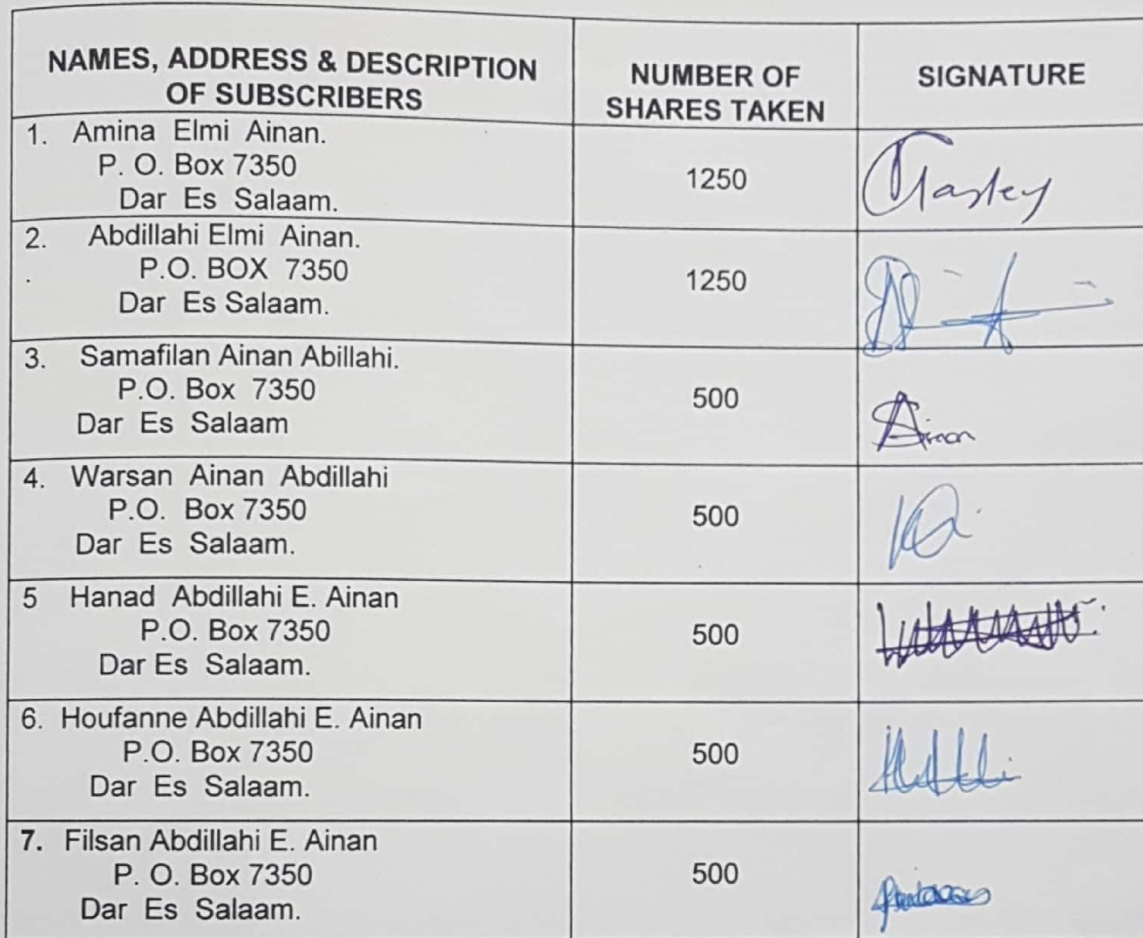 NAMES, ADDRESS & DESCRIPTION
OF SUBSCRIBERS
NUMBER OF
SHARES TAKEN
SIGNATURE
1. Amina Elmi Ainan.
P. O. Box 7350
Dar Es Salaam.
1250
2. Abdillahi Elmi Ainan.
. P.O. BOX 7350
Dar Es Salaam.
1250
3. Samafilan Ainan Abillahi.
P.O. Box 7350
Dar Es Salaam
500
4. Warsan Ainan Abdillahi
P.O. Box 7350
Dar Es Salaam.
500
5 Hanad Abdillahi E. Ainan
P.O. Box 7350
Dar Es Salaam.
500
6. Houfanne Abdillahi E. Ainan
P.O. Box 7350
Dar Es Salaam.
500
7. Filsan Abdillahi E. Ainan
P. O. Box 7350
Dar Es Salaam.
500